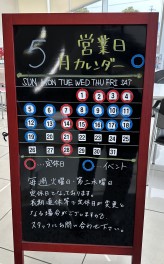 5月 営業日
カレンダー
SUN MON TUE WED THU FRI SAT
1 2 3 4
5 6 7 8 9 10 11
12 13 14 15 16 17 18
19 20 21 22 23 24 25
26 27 28 29 30 31
…定休日 …イベント
毎週火曜日・第二水曜日
定休日となっております。
長期連休等で定休日が変更と
なる場合がございますので
スタッフにお問い合わせ下さい。